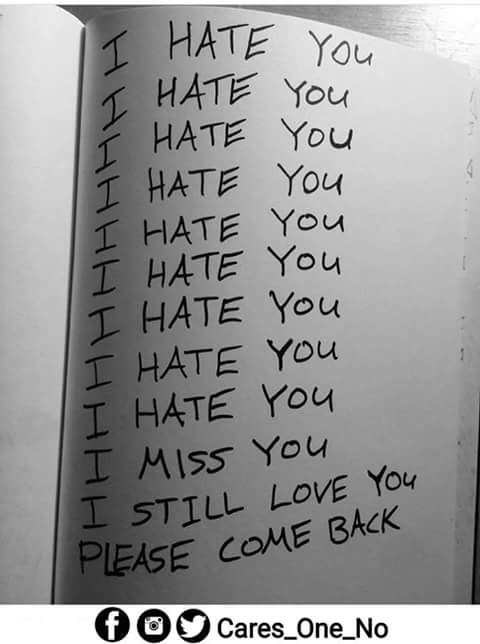 I HATE YOU
I HATE YOU
I HATE YOU
I HATE YOU
I HATE YOU
I HATE YOU
I HATE YOU
I HATE YOU
I HATE YOU
I MISS YOU
I STILL LOVE YOU
PLEASE COME BACK
Cares_One_No